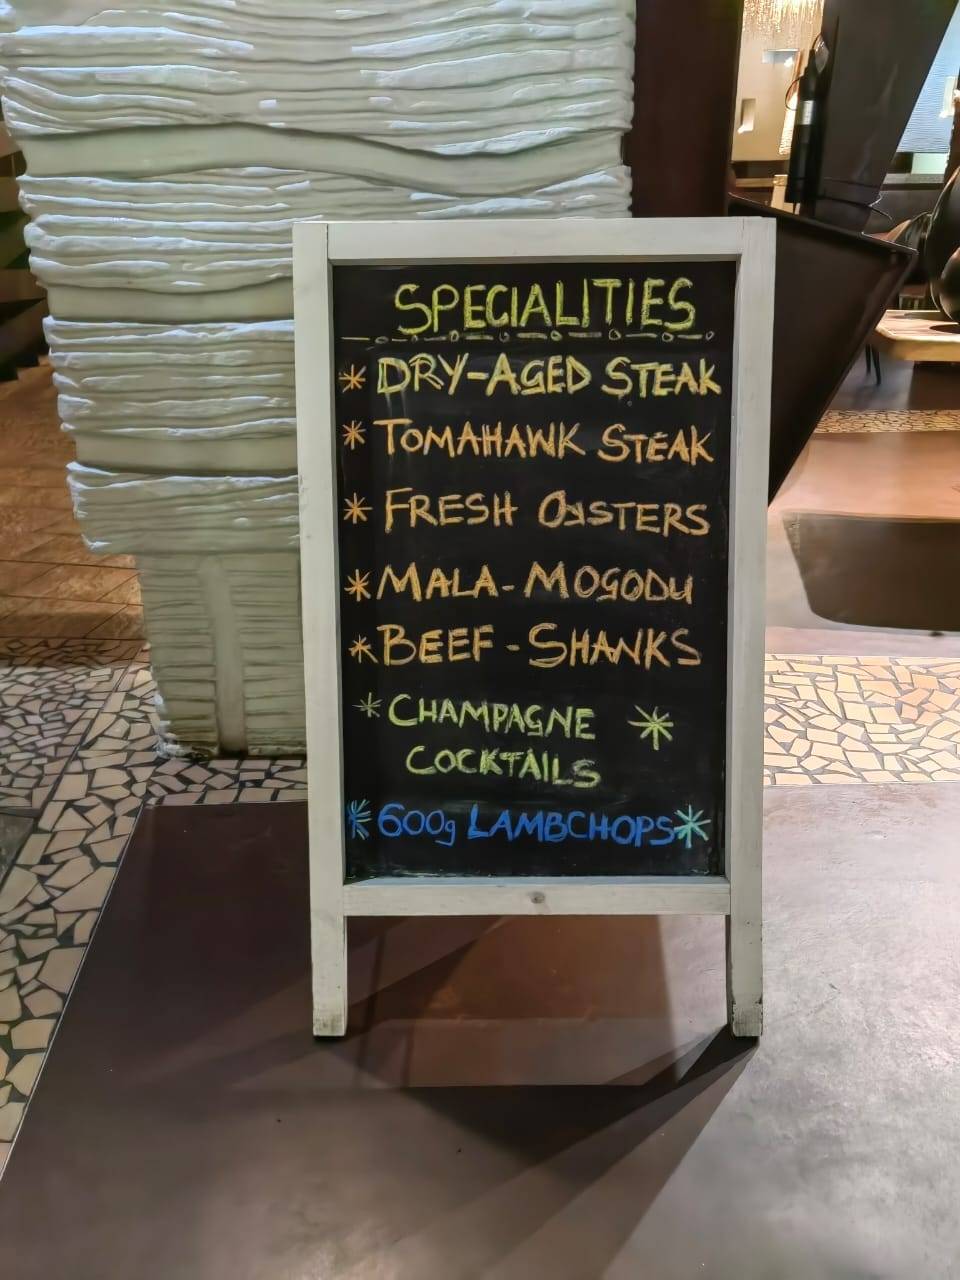 SPECIALITIES
* DRY-AGED STEAK
* TOMAHAWK STEAK
* FRESH OYSTERS
* MALA-MOGODU
* BEEF-SHANKS
* CHAMPAGNE *
COCKTAILS
* 600g LAMBCHOPS *